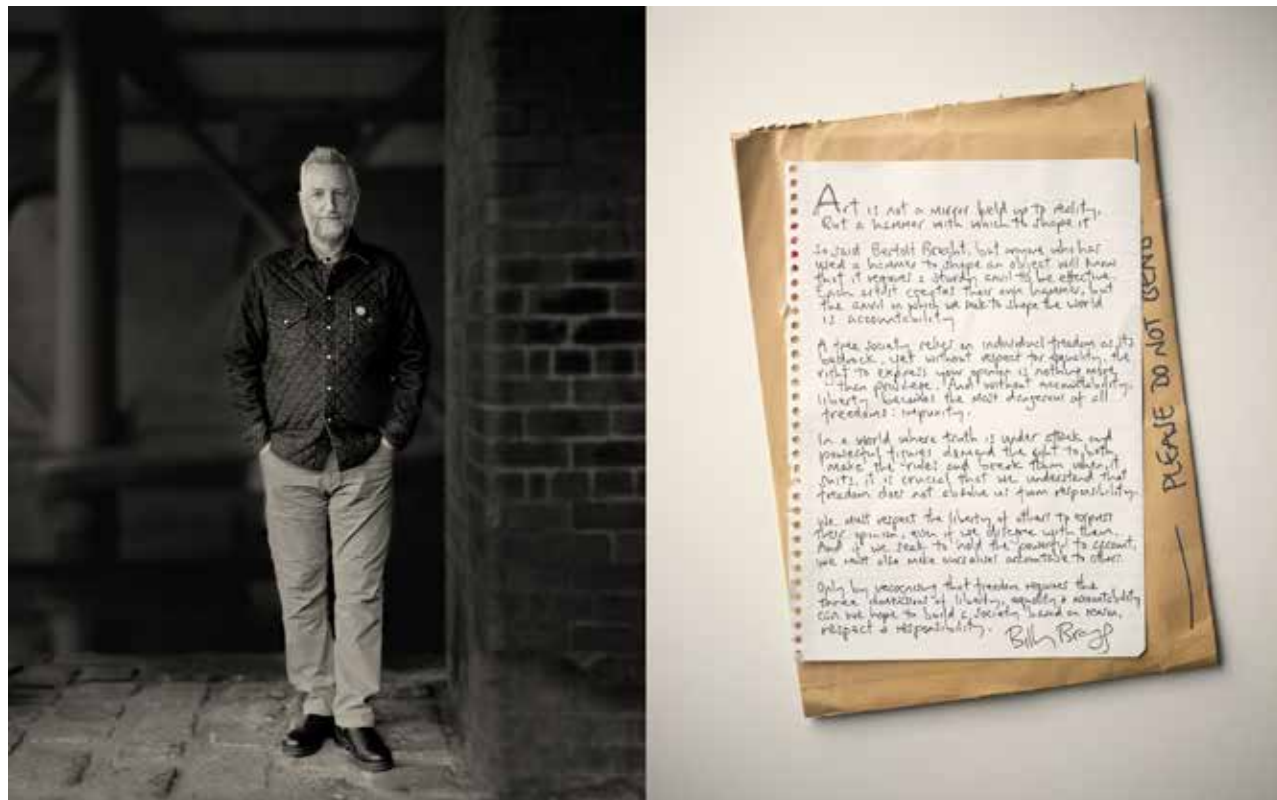 Art is not a mirror held up to reality,
But a hammer with which to shape it
So said Bertolt Brecht, but anyone who has
used a hammer to shape an object will know
that it requires a sturdy anvil to be effective
Each artist creates their own hammer, but
the anvil on which we seek to shape the world
is accountability
A free society relies on individual freedom as its
bedrock, yet without respect for equality, the
right to express your opinion is nothing more
than privilege. And without accountability,
liberty becomes the most dangerous of all
freedoms: impunity.
In a world where truth is under attack and
powerful figures demand the right to both
make the rules and break them when it
suits, it is crucial that we understand that
freedom does not absolve us from responsibility.
We must respect the liberty of others to express
their opinion, even if we disagree with them.
And if we seek to hold the powerful to account,
we must also make ourselves accountable to others.
Only by recognising that freedom requires the
three dimensions of liberty, equality & accountability
can we hope to build a society based on reason,
respect & responsibility.
Billy Bragg
PLEASE DO NOT BEND